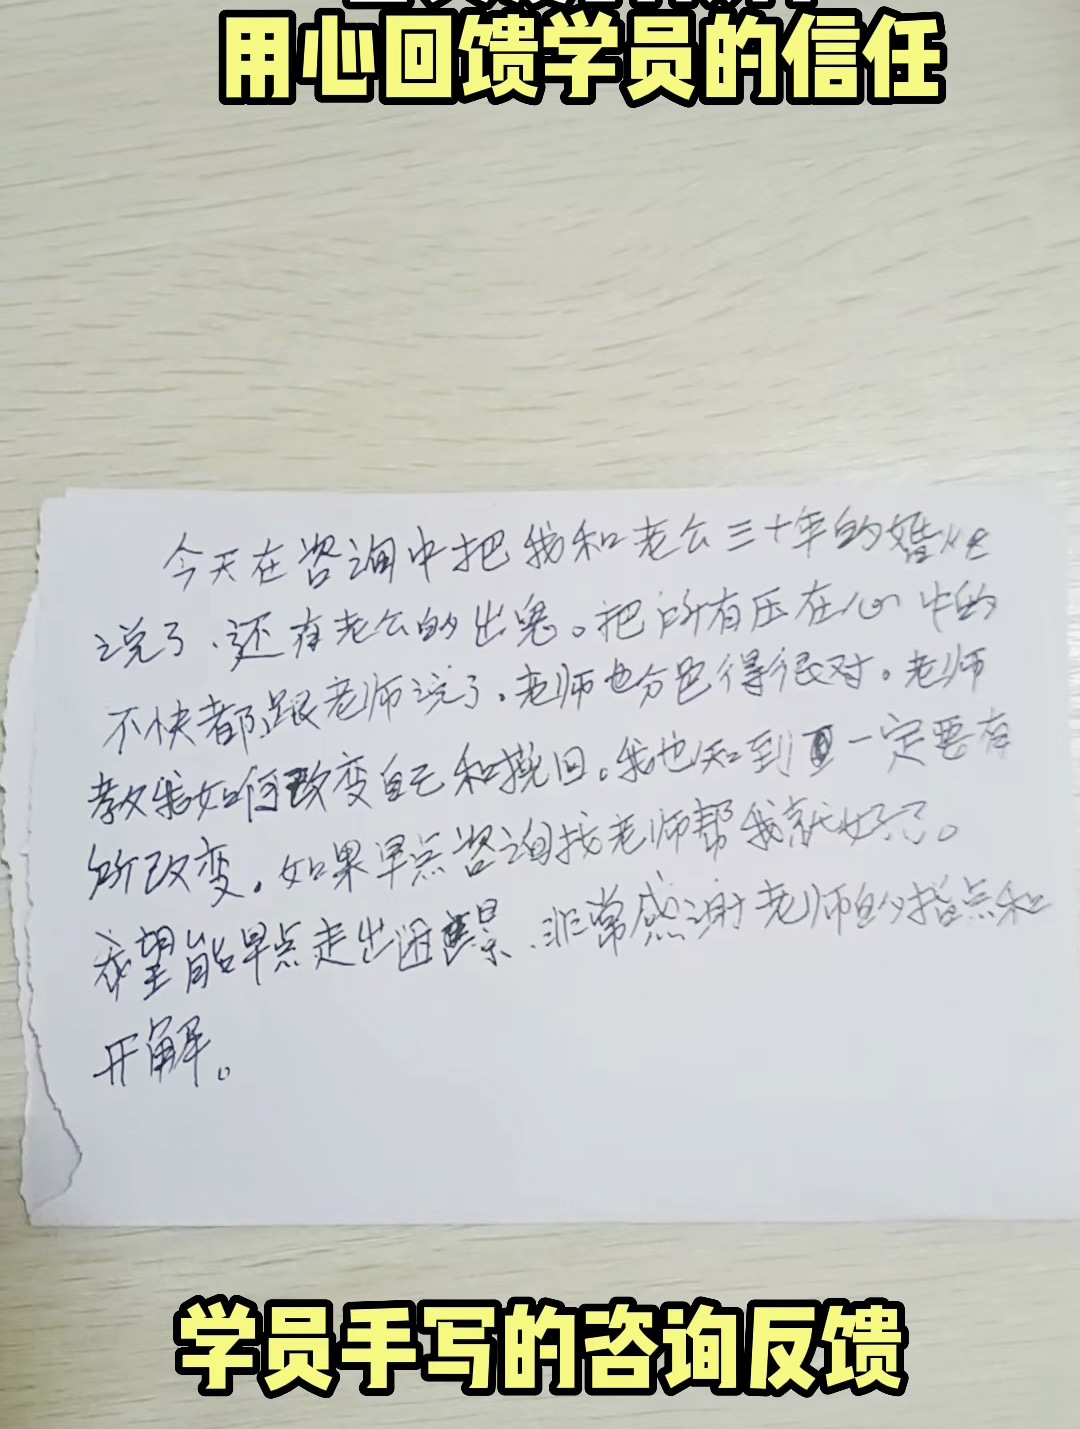 用心回馈学员的信任
今天在咨询中把我和老公三十年的婚姻
说了、还有老公的出鬼。把所有压在心中的
不快都跟老师说了。老师也分迤得很对。老师
教我如何改变自己和挽回。我也知到一定要有
所改变。如果早点咨询找老师帮我就好了。
希望能早点走出困境、非常感谢老师的指点和
开解。
学员手写的咨询反馈